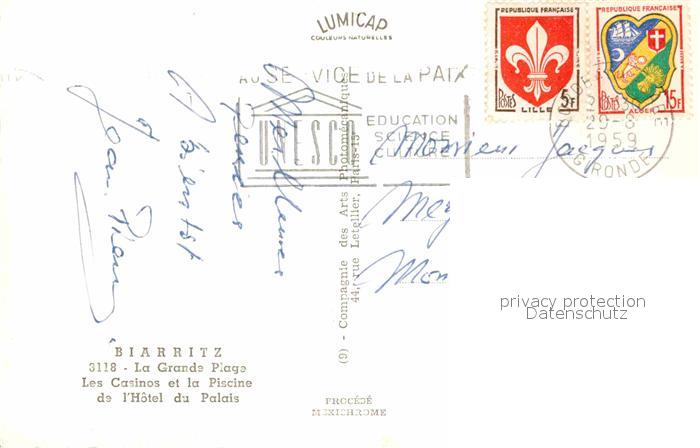 LUMICAP
COULEURS NATURELLES
REPUBLIQUE FRANÇAISE
POSTES
5F
LILLE
REPUBLIQUE FRANÇAISE
POSTES
15F
ALGER
AU SERVICE DE LA PAIX
UNESCO
EDUCATION
SCIENCE
CULTURE
BORDEAUX
29-8
1959
GIRONDE
Meilleures
Pensées
A Bientôt
Jean Pierre
(9) - Compagnie des Arts Photomécaniques
44, rue Letellier, Paris-15e
Monsieur Jacques
Mey
Mon
privacy protection
Datenschutz
BIARRITZ
3118 - La Grande Plage
Les Casinos et la Piscine
de l'Hôtel du Palais
PROCÉDÉ
MEXICHROME